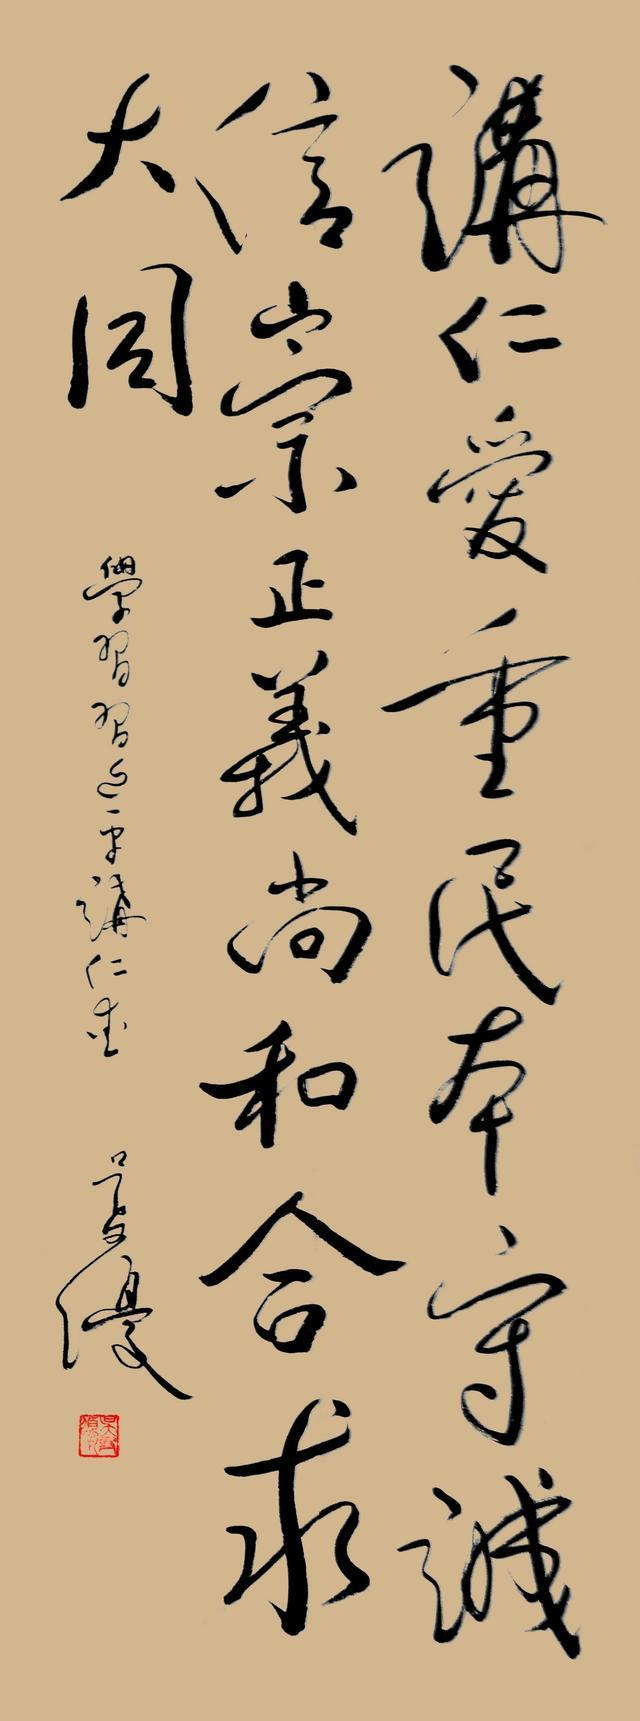 講仁愛重民本守誠
信崇正義尚和合求
大同
學習習近平講仁愛
吴優